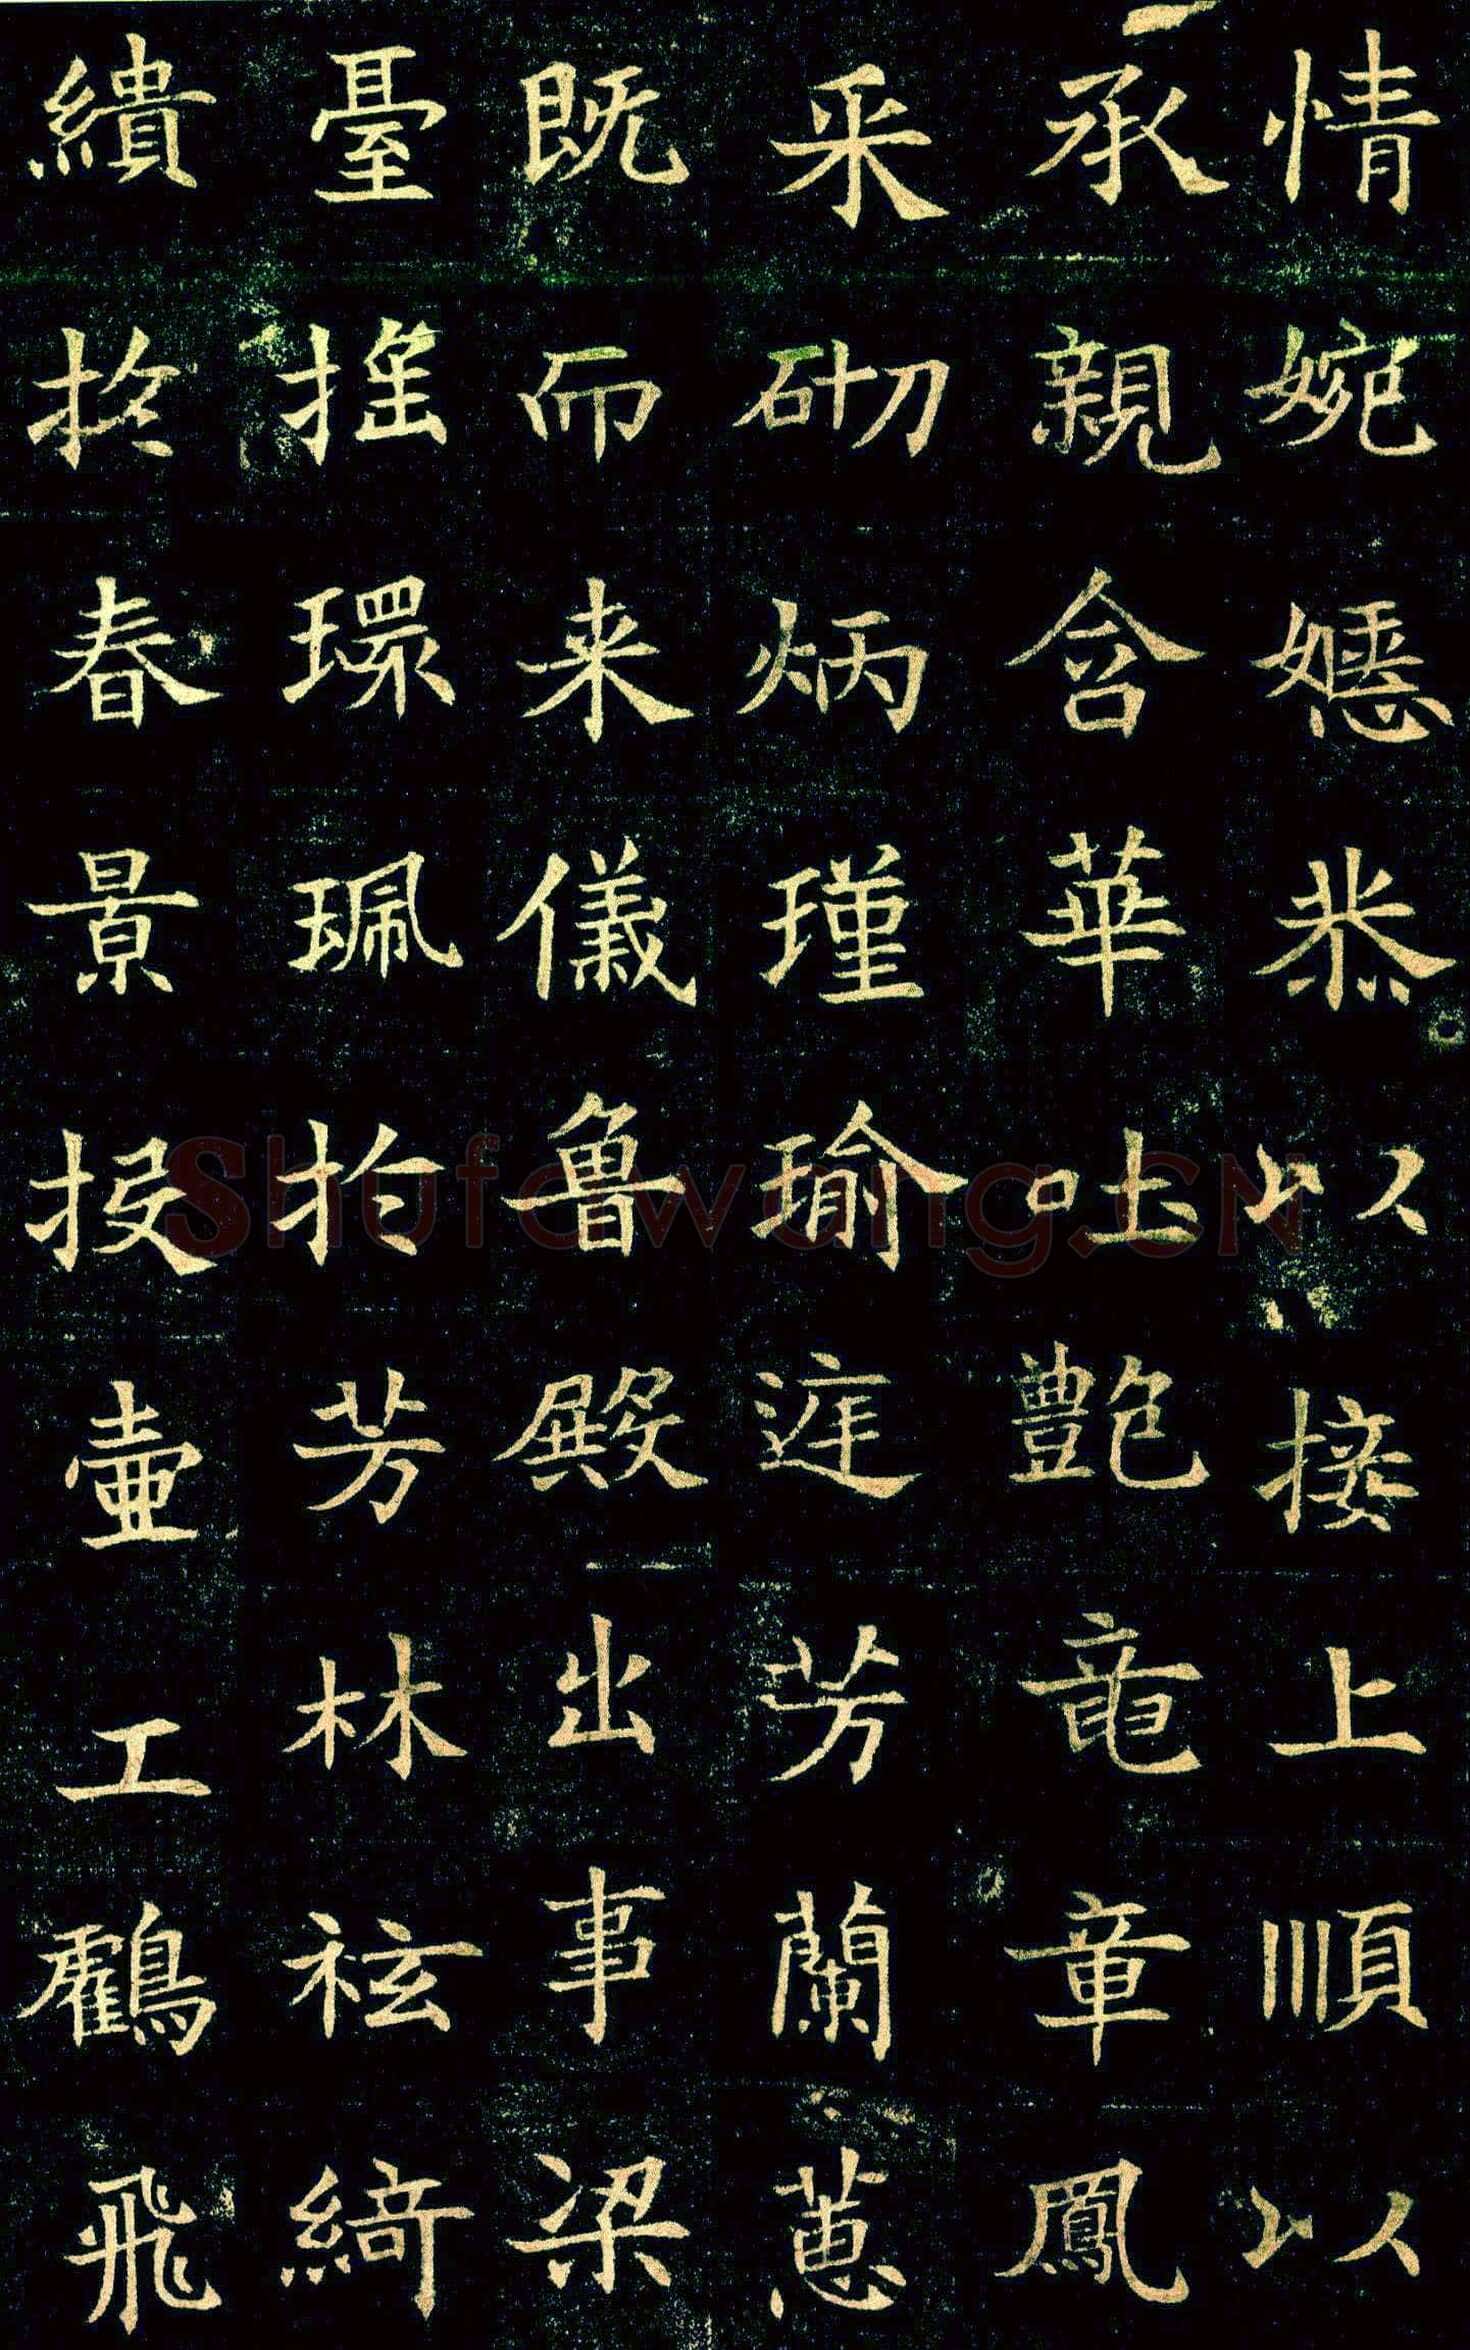 情婉嫕恭以接上順以
承親含華吐艷竜章鳳
采砌炳瑾瑜庭芳蘭蕙
既而来儀魯殿出事梁
臺摇環珮於芳林袨綺
繢於春景投壺工鶴飛
Shufawang.CN